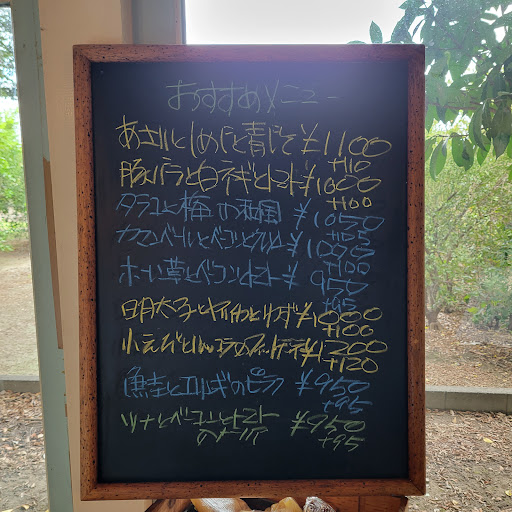 おすすめメニュー
あさりとしめじと青じそ ¥1100
+110
豚バラと白ネギとトマト ¥1000
+100
タラコと梅の和風 ¥1050
+105
カマンベールとベーコンとクリーム ¥1000
+100
ホーレン草とベーコントマト ¥950
+95
明太子とイカと ¥1000
+100
小えびと ¥1200
+120
鮭とエリンギのピラフ ¥950
+95
ツナとベーコンとトマト ¥950
の +95